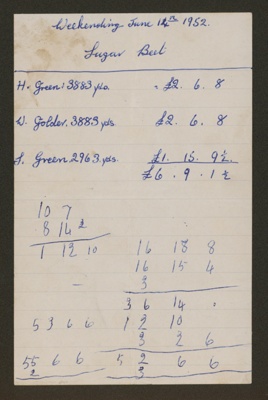 Weekending June 14th 1952.
Sugar Beet
H. Green. 3883 yds. = £2. 6. 8
W. Golder. 3883 yds. £2. 6. 8
S. Green 2963 yds. £1. 15. 9½
£6. 9. 1½
10 7
8 14½
1 12 10
16 18 8
16 15 4
3
3 6 14
53 6 6
1 2 10
3 2 6
55 6 6
5 2 6 6
2
3